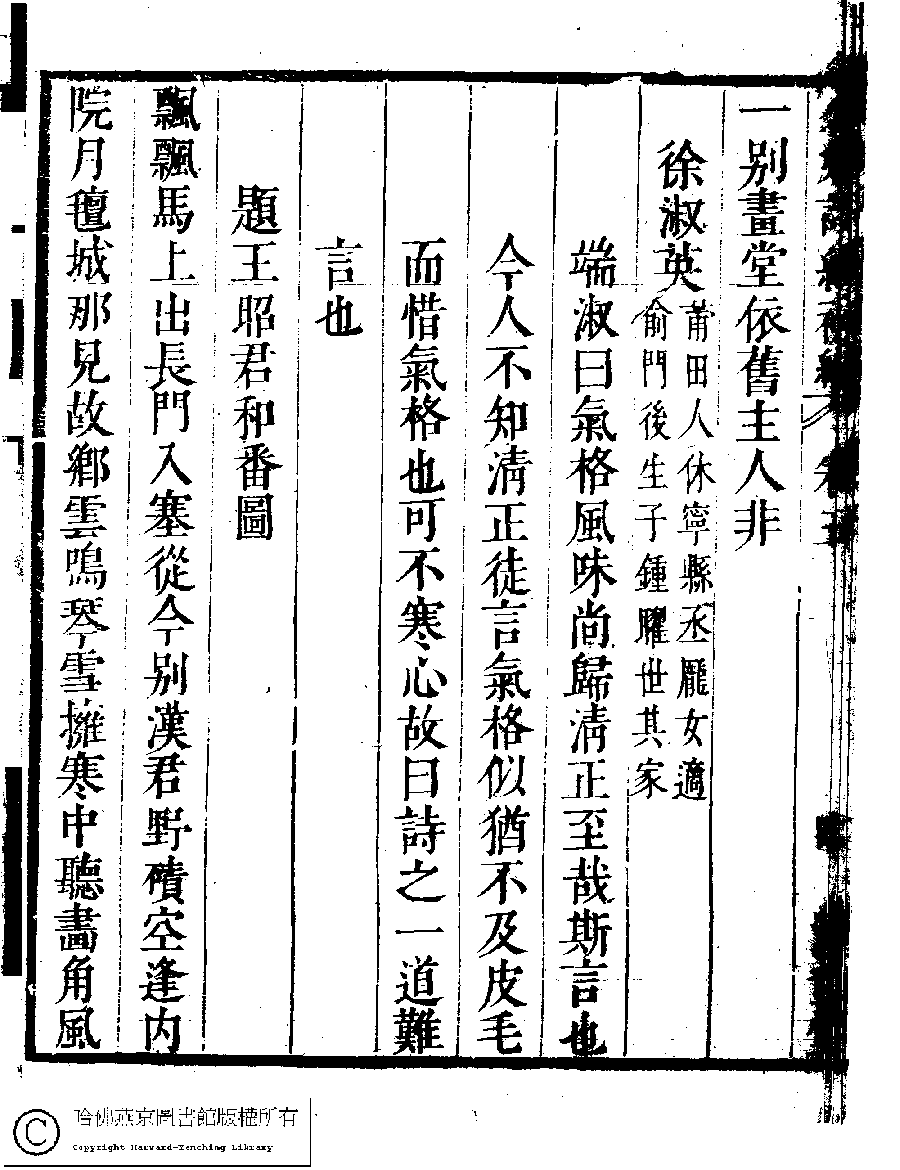 一别畫堂依舊主人非
徐淑英
莆田人休寧縣丞龎女適
俞門後生子鍾聯世其家
端淑曰氣格風味尚歸淸正至哉斯言也
今人不知淸正徒言氣格似猶不及皮毛
而惜氣格也可不寒心故曰詩之一道難
言也
題王昭君和番圖
飄飄馬上出長門入塞從今别漢君野磧空逢內
院月氊城那見故鄉雲鳴琴雪擁寒中聽畵角風
哈佛燕京圖書館版權所有
Copyright Harvard-Yenching Library